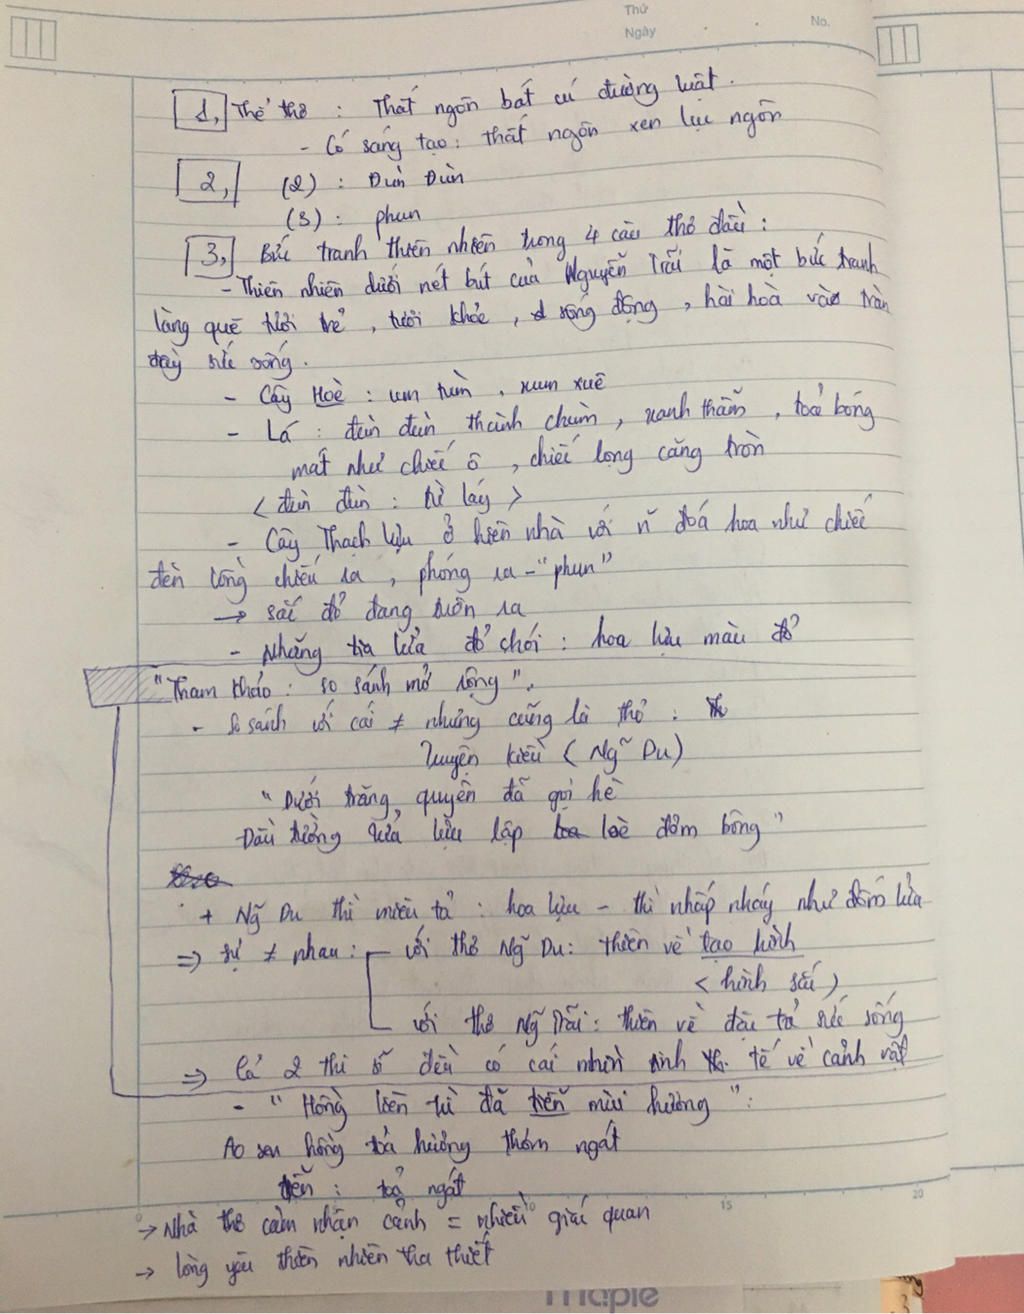 Thứ
Ngày
No.
1, Thể thơ : Thất ngôn bát cú đường luật.
- Có sáng tạo : thất ngôn xen lục ngôn
2, (2) : Đùn Đùn
(3) : phun
3, Bức tranh thiên nhiên trong 4 câu thơ đầu :
- Thiên nhiên dưới nét bút của Nguyễn Trãi là một bức tranh
làng quê tươi trẻ, tươi khỏe, sống động, hài hoà và tràn
đầy sức sống.
- Cây Hoè : um tùm, xum xuê
- Lá : đùn đùn thành chùm, xanh thẫm, toả bóng
mát như chiếc ô, chiếc lọng căng tròn
< đùn đùn : từ láy >
- Cây Thạch lựu ở hiên nhà với n~ đoá hoa như chiếc
đèn lồng chiếu ra, phóng ra - "phun"
→ sắc đỏ đang tuôn ra
- Những tia lửa đỏ chói : hoa lựu màu đỏ
"Tham khảo : so sánh mở rộng".
- So sánh với cái ≠ nhưng cũng là thơ :
Truyện kiều ( Ng~ Du)
"Dưới trăng quyên đã gọi hè
Đầu tường lửa lựu lập loè đơm bông"
+ Ng~ Du thì miêu tả : hoa lựu - thì nhấp nháy như đốm lửa
⇒ sự ≠ nhau : với thơ Ng~ Du : thiên về tạo hình
< hình sắc >
với thơ Ng~ Trãi : thiên về đặc tả sức sống
⇒ Cả 2 thi sĩ đều có cái nhìn tinh tế về cảnh vật
- "Hồng liên trì đã tiễn mùi hương" :
Ao sen hồng toả hương thơm ngát
tiễn : toả ngát
→ Nhà thơ cảm nhận cảnh = nhiều giác quan
→ lòng yêu thiên nhiên tha thiết
15
20
maple